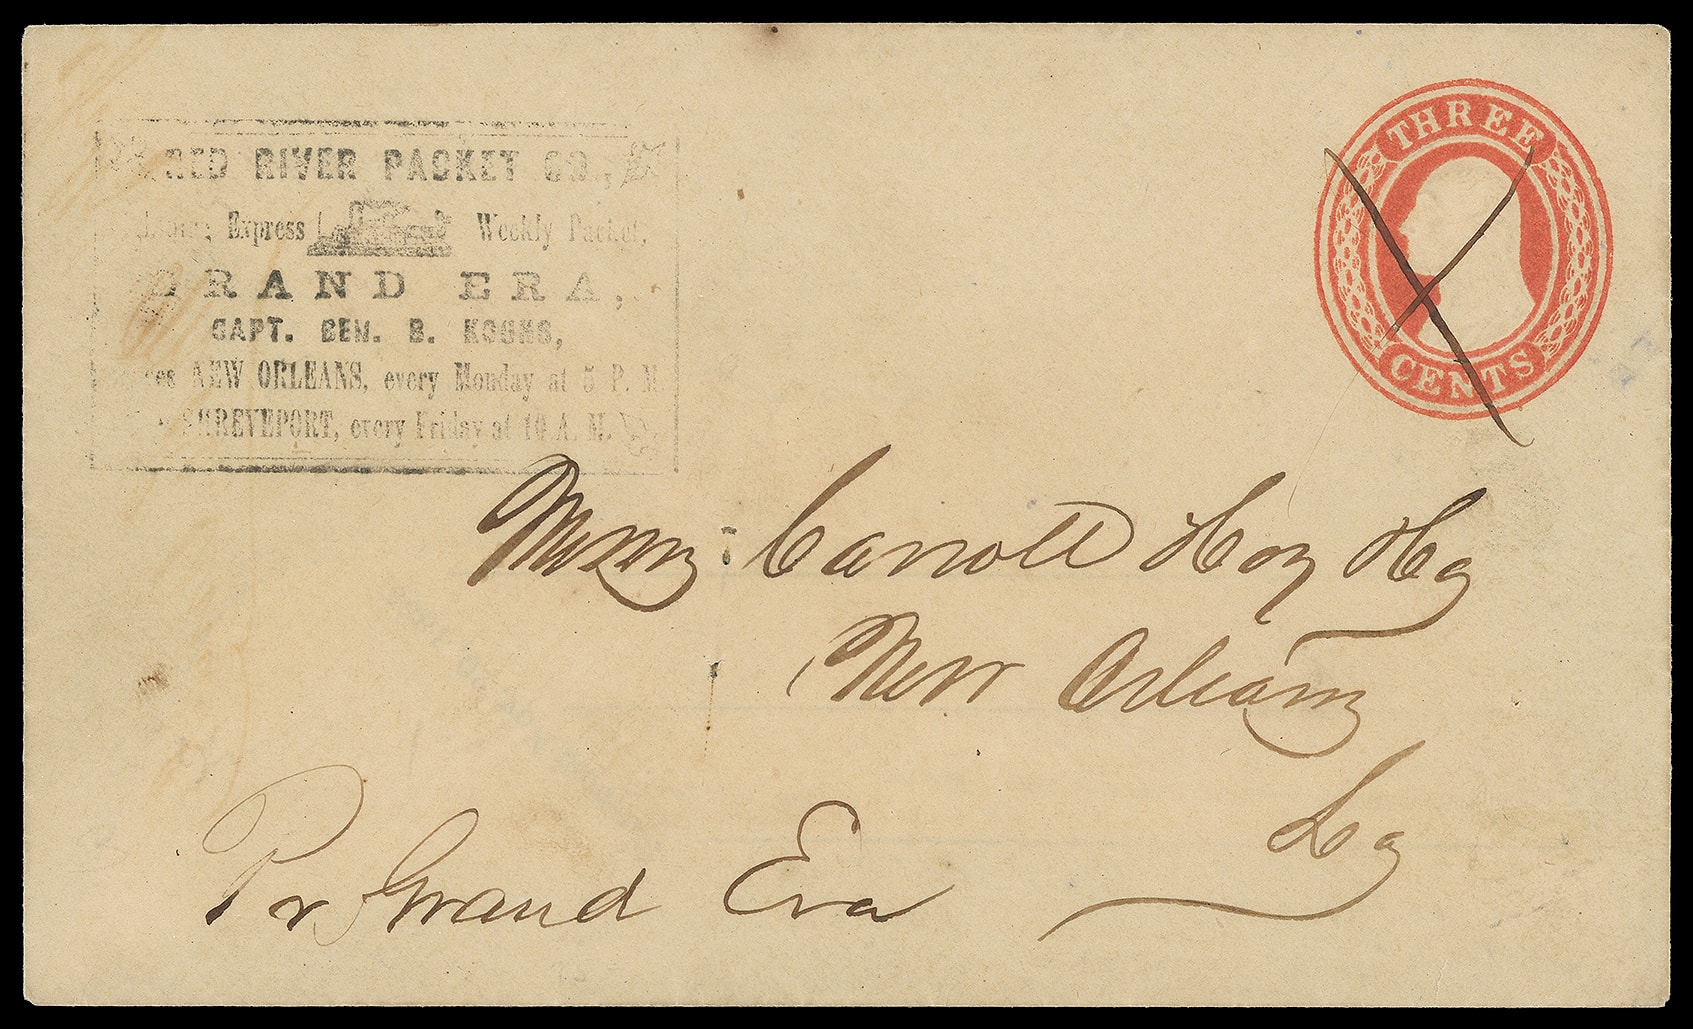 THREE
CENTS
RED RIVER PACKET CO.,
Express Weekly Packet,
GRAND ERA,
CAPT. BEN. B. KOUNS,
NEW ORLEANS, every Monday at 5 P. M
SHREVEPORT, every Friday at 10 A. M.
Messrs Carroll Hoy &Co
New Orleans
La
Pr Grand Era